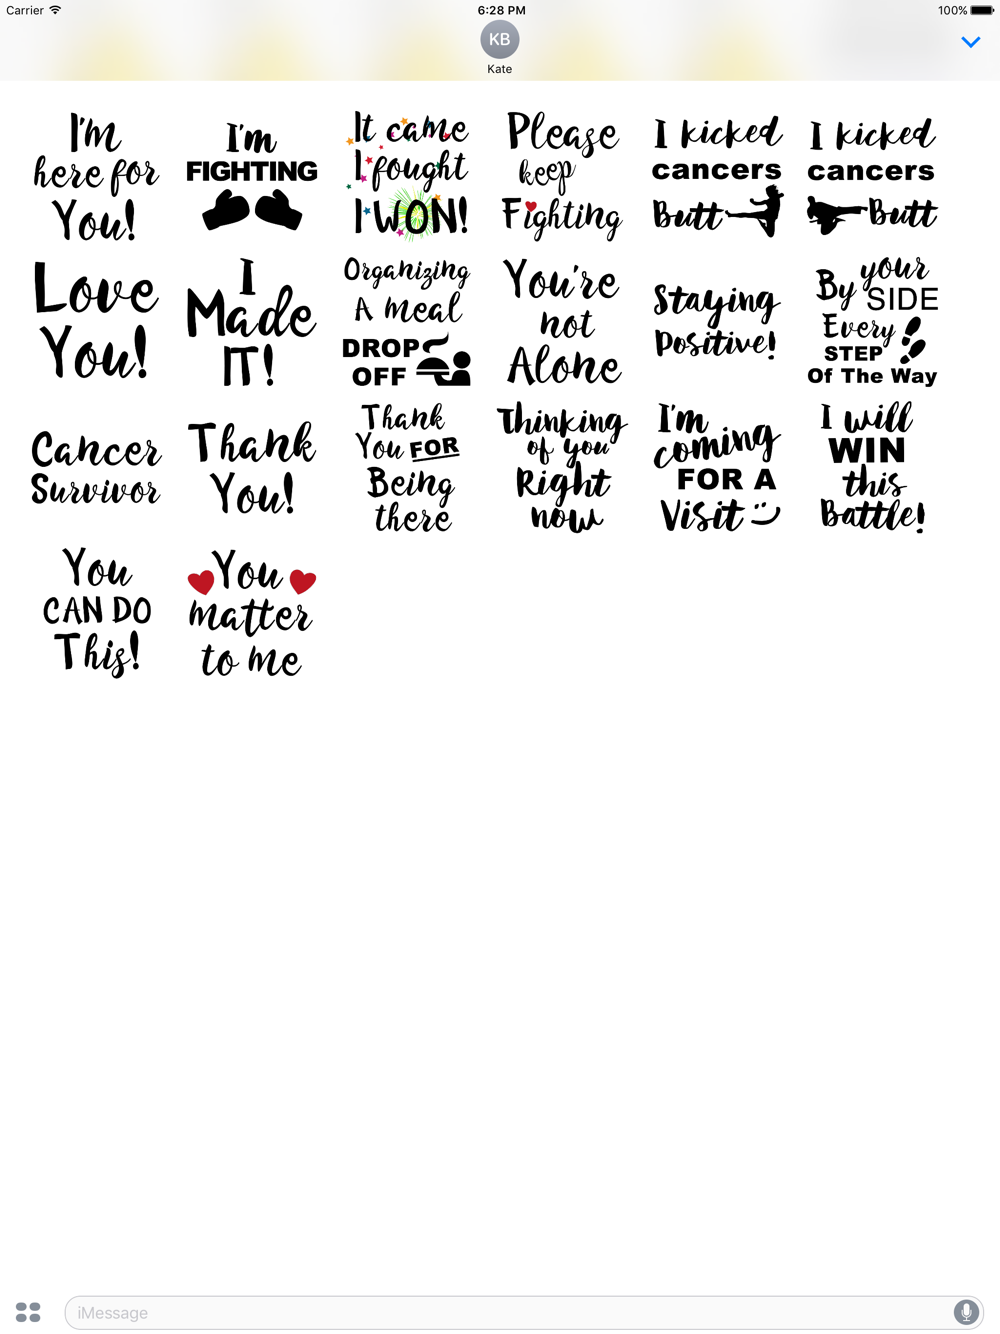 Carrier
6:28 PM
100%
KB
Kate
I'm
here for
You!
I'm
FIGHTING
It came
I fought
I WON!
Please
keep
Fighting
I kicked
cancers
Butt
I kicked
cancers
Butt
Love
You!
I
Made
IT!
Organizing
A meal
DROP
OFF
You're
not
Alone
Staying
Positive!
By your
SIDE
Every
STEP
Of The Way
Cancer
Survivor
Thank
You!
Thank
You FOR
Being
there
Thinking
of you
Right
now
I'm
coming
FOR A
Visit
I will
WIN
this
Battle!
You
CAN DO
This!
You
matter
to me
iMessage